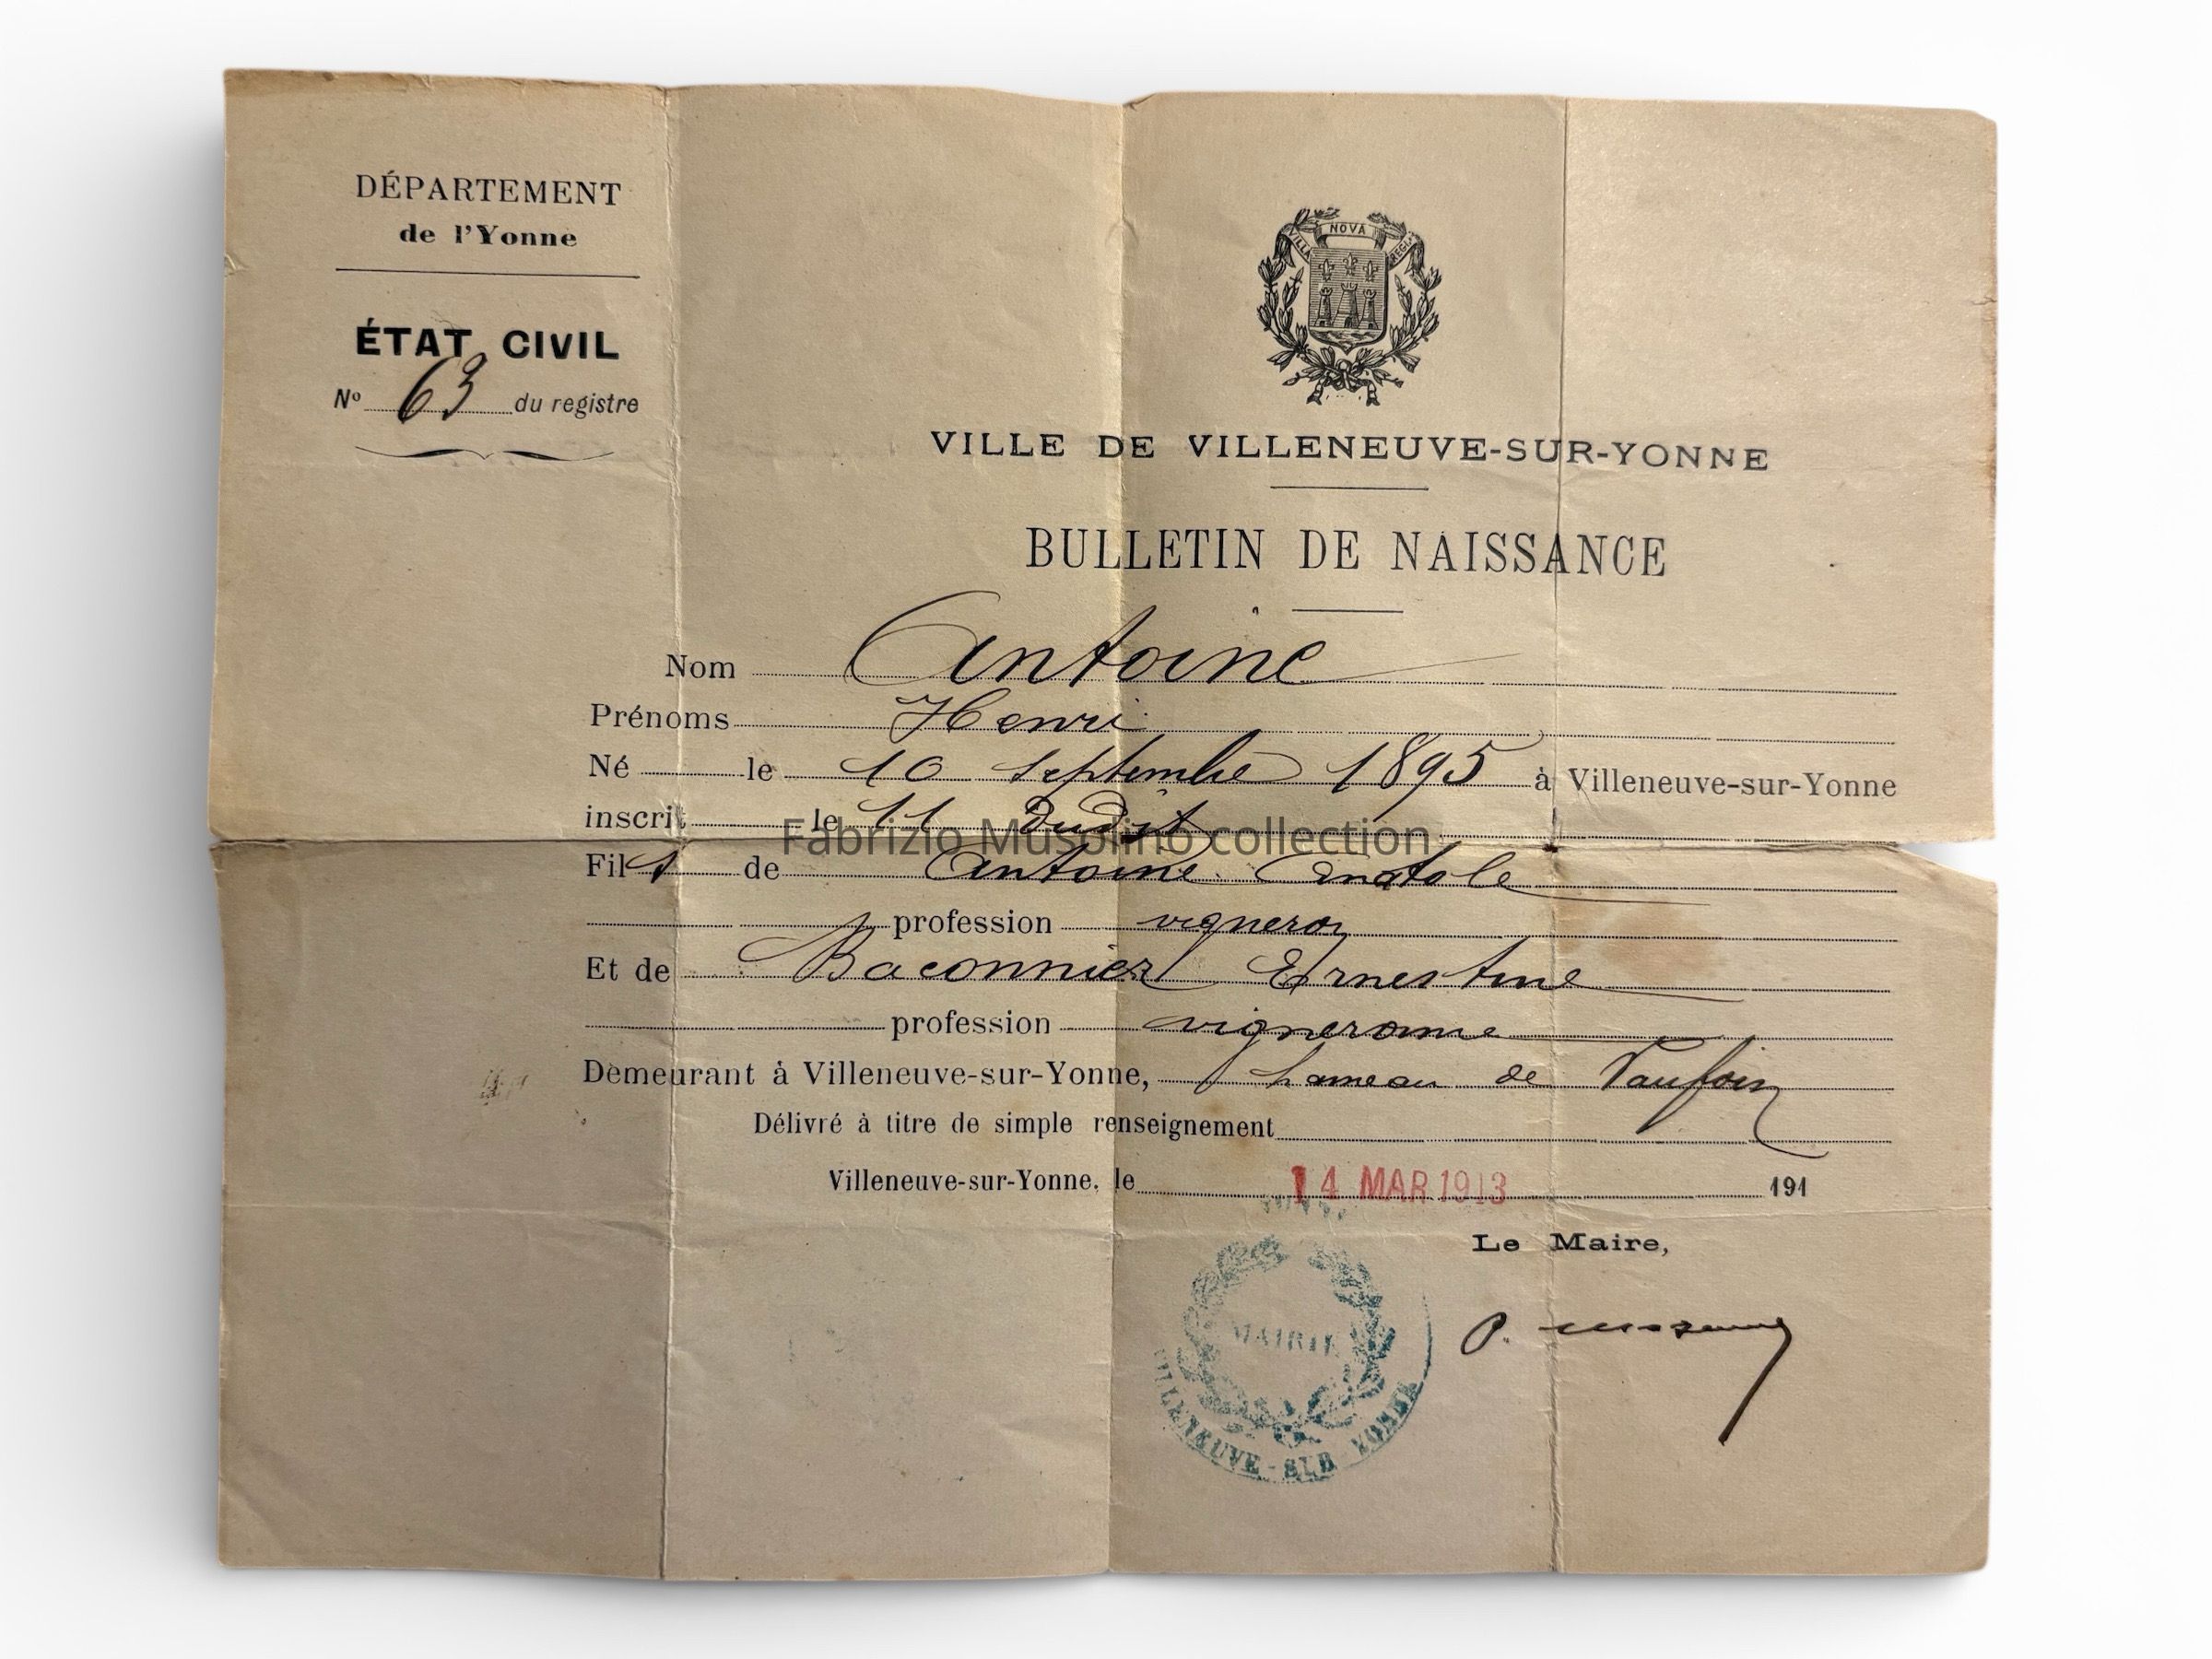 DÉPARTEMENT
de l'Yonne
ÉTAT CIVIL
Nº 63 du registre
VILLA NOVA REGIA
VILLE DE VILLENEUVE-SUR-YONNE
BULLETIN DE NAISSANCE
Nom Antoine
Prénoms Henri
Né le 10 septembre 1895 à Villeneuve-sur-Yonne
inscrit le 11 dudit
Fabrizio Musolino collection
Fils de Antoine Anatole
profession vigneron
Et de Baconnier Ernestine
profession vigneronne
Demeurant à Villeneuve-sur-Yonne, hameau de Vaufoin
Délivré à titre de simple renseignement
Villeneuve-sur-Yonne, le 14 MAR 1913 191
Le Maire,
MAIRIE
VILLENEUVE-SUR-YONNE